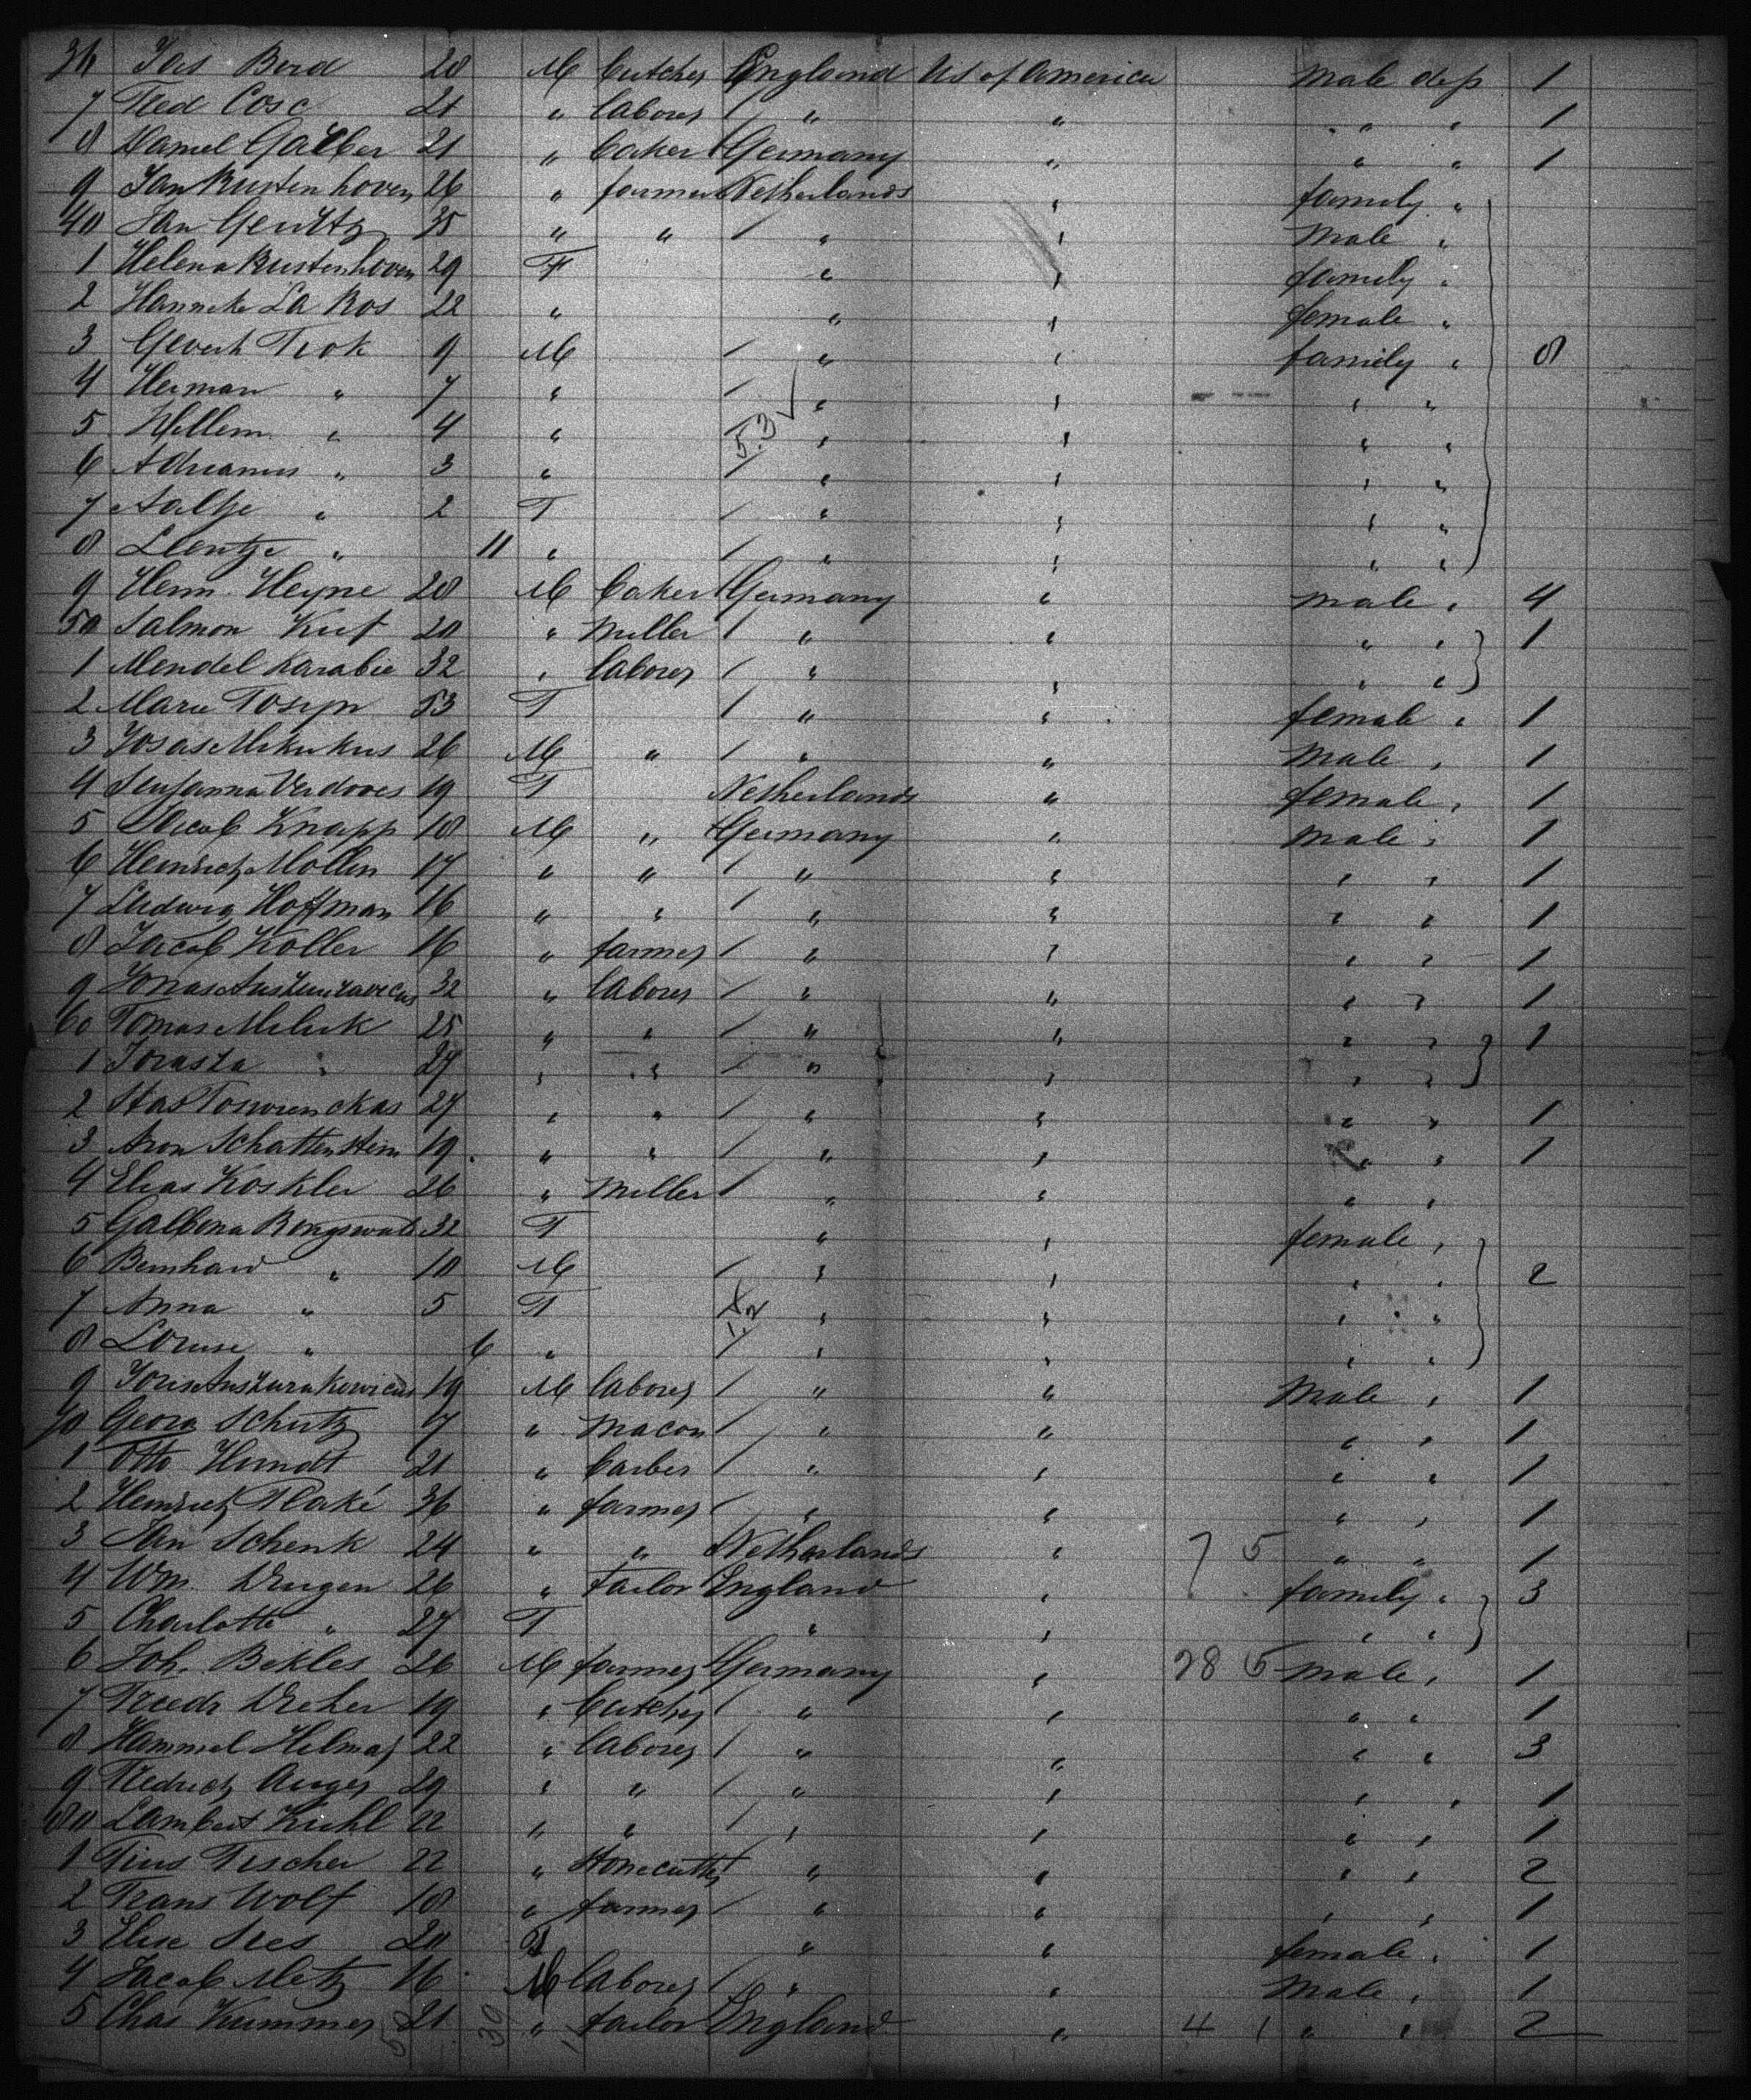 36 Jas Berd 20 M butcher England US of America male dep 1
7 Fred Cosc 21 " labourer / " " " " 1
8 Daniel 21 " baker Germany " " " 1
9 Jan Rustenhoven 26 " farmer Netherlands " family "
40 Jan 35 " " / " " male "
1 Helena Rustenhoven 29 F " " family "
2 Hanneke La Ros 22 " " " female "
3 Gevert Trok 9 M / " " family " 8
4 Herman " 7 " / " " " "
5 Willem " 4 " / " " " "
53 ✓
6 Adrianus " 3 " / " " " "
7 Aaltje " 2 F / " " " "
8 Leentje " 11 " / " " " "
9 Herm. Heyne 28 M baker Germany " male " 4
50 Salmon Kief 20 " miller / " " " " 1
1 Mendel Karabie 32 " labourer / " " " "
2 Marie Tosyn 53 F / " " female " 1
3 Josas Mikukus 26 M " / " " male " 1
4 Susanna Verdoves 19 F Netherlands " female " 1
5 Jacob Knapp 18 M " Germany " male " 1
6 Heinrich Mollin 17 " " / " " " " 1
7 Ludwig Hoffman 16 " " / " " " " 1
8 Jacob Koller 16 " farmer / " " " " 1
9 Jonas 32 " labourer / " " " " 1
60 Tomas Milick 25 " " / " " " " 1
1 Jorasza " 27 " " / " " " "
2 Stas 27 " " / " " " " 1
3 Aron Schattenstein 19 " " / " " " " 1
4 Elias Koskler 26 " miller / " " " "
5 32 F " " female "
6 Bernhard " 10 M / " " " " 2
7 Anna " 5 F " " " "
8 Louise " 6 " / " " " "
9 19 M labourer / " " male " 1
70 Georg Schutz 17 " macon / " " " " 1
1 Otto Hundt 21 " barber / " " " " 1
2 Heinrich Flaké 36 " farmer / " " " " 1
3 Jan Schenk 24 " " Netherlands " 7 5 " " 1
4 Wm. 26 " tailor England " family " 3
5 Charlotte " 27 F " " " "
6 Joh. Bekles 26 M farmer Germany " 28 5 male " 1
7 Friedr Dreher 19 " butcher / " " " " 1
8 Hammel Helmar 22 " labourer / " " " " 3
9 Fredrich Auger 29 " " / " " " " 1
80 Lambert Kuhl 22 " " / " " " " 1
1 Fischer 22 " stonecutter / " " " " 2
2 Frans Wolf 18 " farmer / " " " " 1
3 Elise 20 F " " female " 1
4 Jacob Metz 16 M labourer / " " male " 1
5 Chas Kummer 21 " tailor England " 4 1 " " 2
30